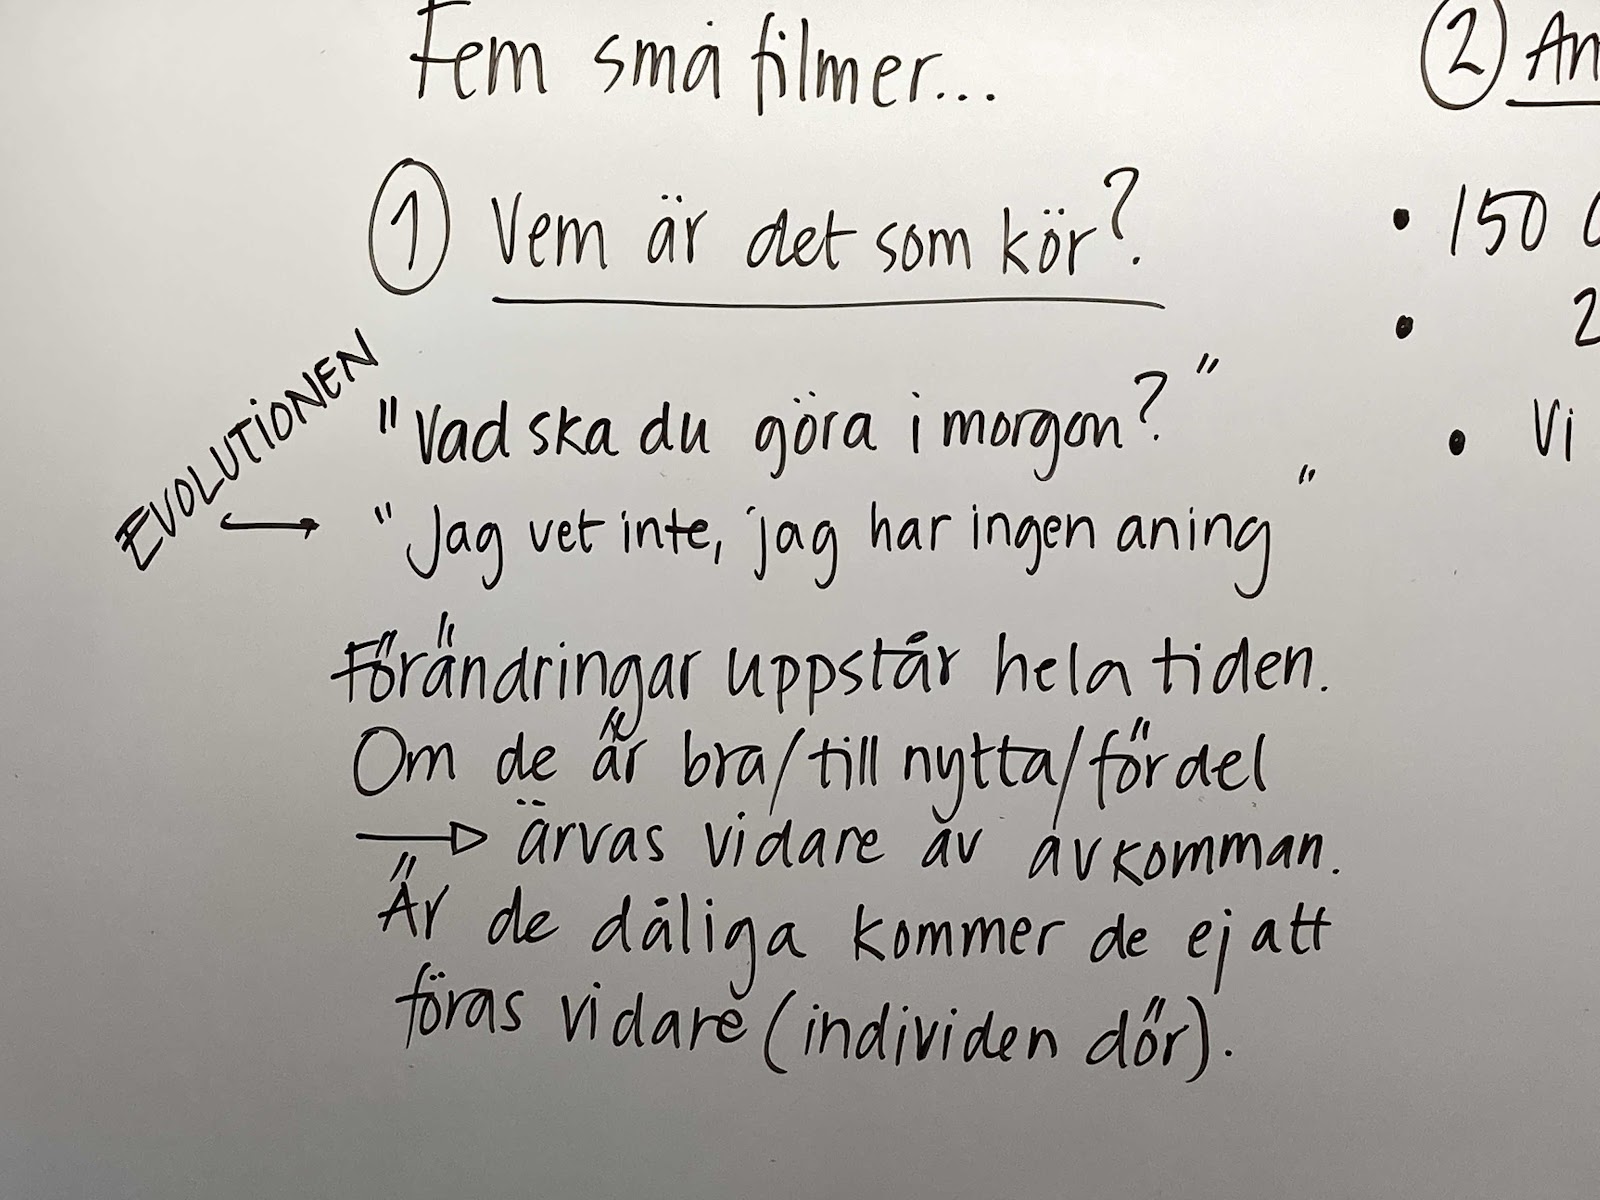 Fem små filmer...
① Vem är det som kör?
"Vad ska du göra i morgon?"
EVOLUTIONEN → "Jag vet inte, jag har ingen aning"
Förändringar uppstår hela tiden.
Om de är bra/till nytta/fördel
→ ärvas vidare av avkomman.
Är de dåliga kommer de ej att
föras vidare (individen dör).
② An
• 150
• 2
• Vi